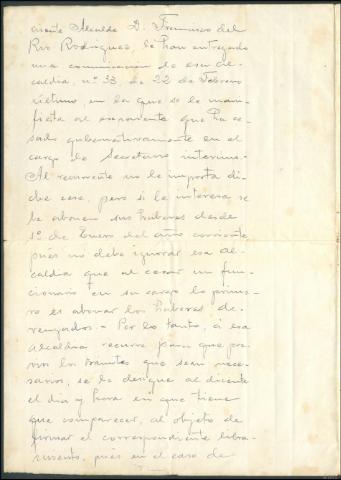 mente Alcalde D. Francisco del
Rio Rodriguez, le han entregado
una comunicación de esa Al-
caldia, nº 33, de 22 de Febrero
ultimo, en la que se le mani-
fiesta al exponente que ha ce-
sado gubernativamente en el
cargo de Secretario interino.-
Al recurrente no le importa di-
cho cese, pero si le interesa se
le abonen sus haberes desde
1º de Enero del año corriente
pues no debe ignorar esa Al-
caldia que al cesar un fun-
cionario en su cargo lo prime-
ro es abonar los haberes de-
vengados.- Por lo tanto, á esa
Alcaldia recurre para que pre-
vios los tramites que sean nece-
sarios, se le designe al dicente
el dia y hora en que tiene
que comparecer, al objeto de
firmar el correspondiente libra-
miento, pues en el caso de